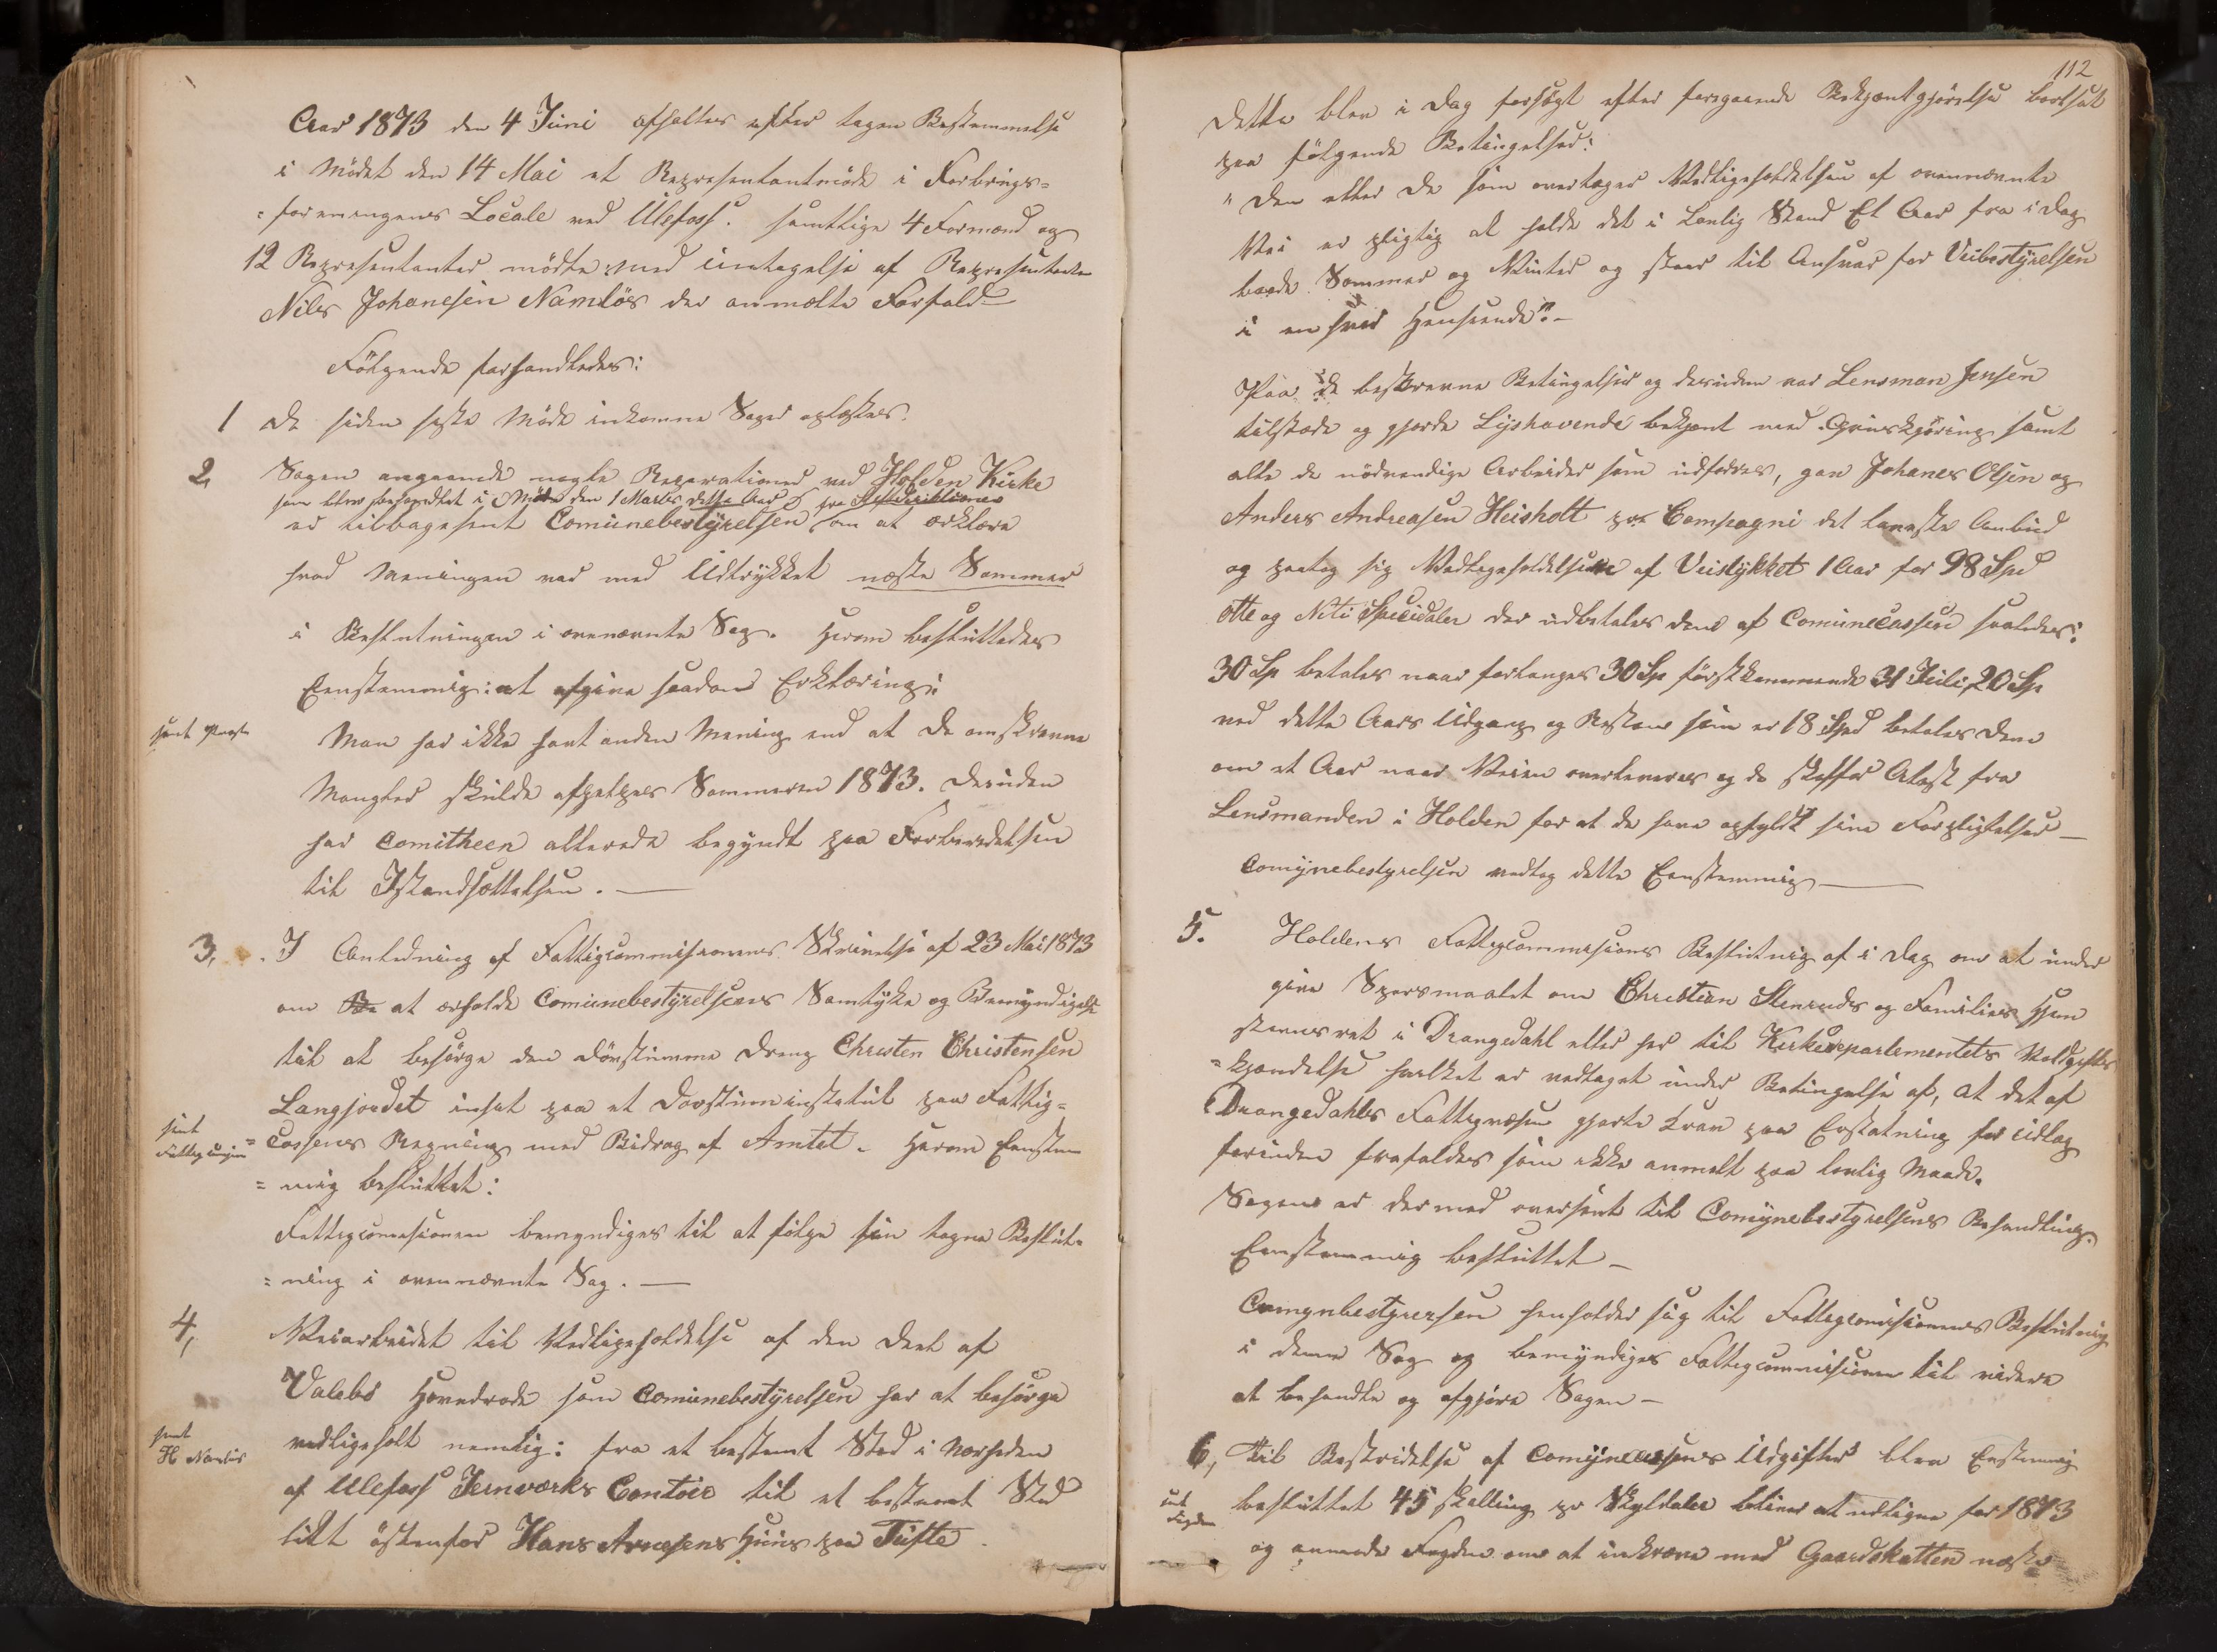 Aar 1873 den 4 Juni afholtes efter tagen Bestemmelse
i Mödet den 14 Mai et Representantmöde i Forbrugs=
=foreningens Locale ved Ulefoss. samtlige 4 Formænd og
12 Representanter mödte med undtagelse af Representanten
Nils Johanesen Namlös der anmelte Forfald
Fölgende forhandledes:
1 De siden siste Möde inkomne Sager oplæstes.
2, Sagen angaaende nogle Reparationer ved Holden Kirke
som blev behandlet i Möde den 1 Marts dette Aar fra Stiftsdirektionen
er tilbagesent Comunebestÿrelsen om at erklære
hvad Meningen var med Udtrÿkket næste Sommer
i Beslutningen i ovennævnte Sag. Herom besluttedes
Eenstemmig: at afgive saadan Erklæring:
sent Prosten
Man har ikke havt anden Mening end at de omskrevne
Mangler skulde afhjelpes Sommeren 1873. Desuden
har Comitheen allerede begÿndt paa Forberedelsen
til Istandsættelsen. —
3, I Anledning af Fattigcommisionens Skrivelse af 23 Mai 1873
om at erholde Comunebestÿrelsens Samtÿke og Bemÿndigelse
til at besörge den dövstumme Dreng Christen Christensen
Langjordet insat paa et Dovstuminstetut paa Fattig=
sent
Fattigcomisionen
=Cassens Regning med Bidrag af Amtet. Herom Eenstem
=mig besluttet:
Fattigcomisionen bemyndiges til at fölge sin tagne Beslut=
=ning i ovennævnte Sag. —
4, Veiarbeidet til Vedligeholdelse af den Deel af
Valebö Hovedrode som Comunebestÿrelsen har at besörge
sent
H
vedligeholt nemlig: fra et bestemt Sted i Nærheden
af Ulefoss Jernværks Contoir til et bestemt Sted
lidt östenfor Hans Arnesens Huus paa Tufte
112
Dette blev i Dag forsögt efter foregaaende Bekjentgjörelse bortsat
paa fölgende Betingelser:
" Den eller de som overtager Vedligeholdelsen af ovennævnte
Vei er pligtig at holde det i Lovlig Stand Et Aar fra i Dag
baade Sommer og Vinter og staar til Ansvar for Veibestÿrelsen
i en hver Henseende". —
Paa de beskrevne Betingelser og desuden var Lensman Jensen
tilstæde og gjorde Lÿsthavende bekjent med Gruuskjöring samt
alle de nödvendige Arbeider som udfordres, gav Johanes Olsen og
Anders Andreasen Heisholt pr Compagni det laveste Anbud
og paatog sig Vedligeholdelsen af Veistÿkket 1 Aar for 98 Spd
otte og Niti Speciedaler der udbetales dem af Comunecassen saaledes:
30 Sp betales naar forlanges 30 Sp förstkommende 31 Juli, 20 Sp
ved dette Aars Udgang og Resten som er 18 Spd betales dem
om et Aar naar Veien overleveres og de skaffer Atest fra
Lensmanden i Holden for at de have opfyldt sine Forpligtelser —
Comÿnebestyrelsen vedtog dette Eenstemmig —
5. Holdens Fattigcommisions Beslutnig af i Dag om at under
give Spörsmaalet om Christian Stenruds og Families Hjem
stavnsret i Drangedahl eller her til Kirkedepartementets Voldgifts
=kjendelse hvilket er vedtaget under Betingelse af, at det af
Drangedahls Fattigvæsen gjorte Krav paa Erstatning for Udlæg
forinden frafaldes som ikke anmelt paa lovlig Maade.
Sagen er dermed oversent til Comÿnebestyrelsens Behandling.
Eenstemmig besluttet —
Comynbestyrersen henholder sig til Fattigcomisionens Beslutnig
i denne Sag og bemÿndiges Fattigcommisionen til videre
at behandle og afgjöre Sagen —
6, Til Bestridelse af Comÿnecassens Udgifter blev Eenstemmig
besluttet 45 skelling pr Skyldaler bliver at udligne for 1873
ut
Fogden
og anmode Fogden om at inkræve med Gaardskatten næste